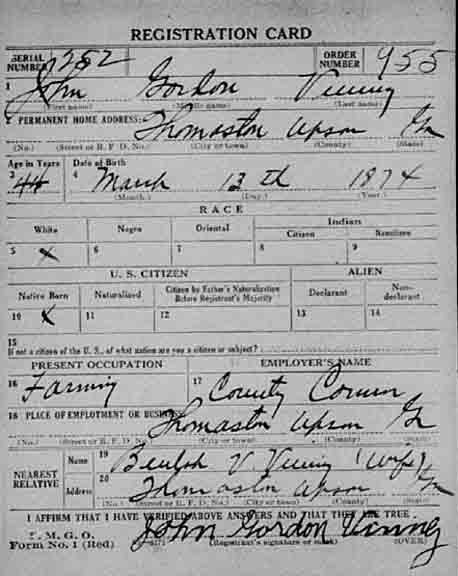 REGISTRATION CARD
SERIAL NUMBER 1252 ORDER NUMBER 955
1 John Gordon Vining
(First name) (Middle name) (Last name)
2 PERMANENT HOME ADDRESS: Thomaston Upson Ga
(No.) (Street or R. F. D. No.) (City or town) (County) (State)
Age in Years Date of Birth
3 44 4 March 13th 1874
(Month.) (Day.) (Year.)
RACE
White Negro Oriental Indians
Citizen Noncitizen
5 x 6 7 8 9
U. S. CITIZEN ALIEN
Native Born Naturalized Citizen by Father's Naturalization Before Registrant's Majority Declarant Non-declarant
10 x 11 12 13 14
15
If not a citizen of the U. S., of what nation are you a citizen or subject?
PRESENT OCCUPATION EMPLOYER'S NAME
16 Farming 17 County
18 PLACE OF EMPLOYMENT OR BUSINESS: Thomaston Upson Ga
(No.) (Street or R. F. D. No.) (City or town) (County) (State)
NEAREST RELATIVE Name 19 Beulah V Vining (Wife)
Address 20 Thomaston Upson Ga
(No.) (Street or R. F. D. No.) (City or town) (County) (State)
I AFFIRM THAT I HAVE VERIFIED ABOVE ANSWERS AND THAT THEY ARE TRUE
P. M. G. O.
Form No. 1 (Red) John Gordon Vining
(Registrant's signature or mark) (OVER)